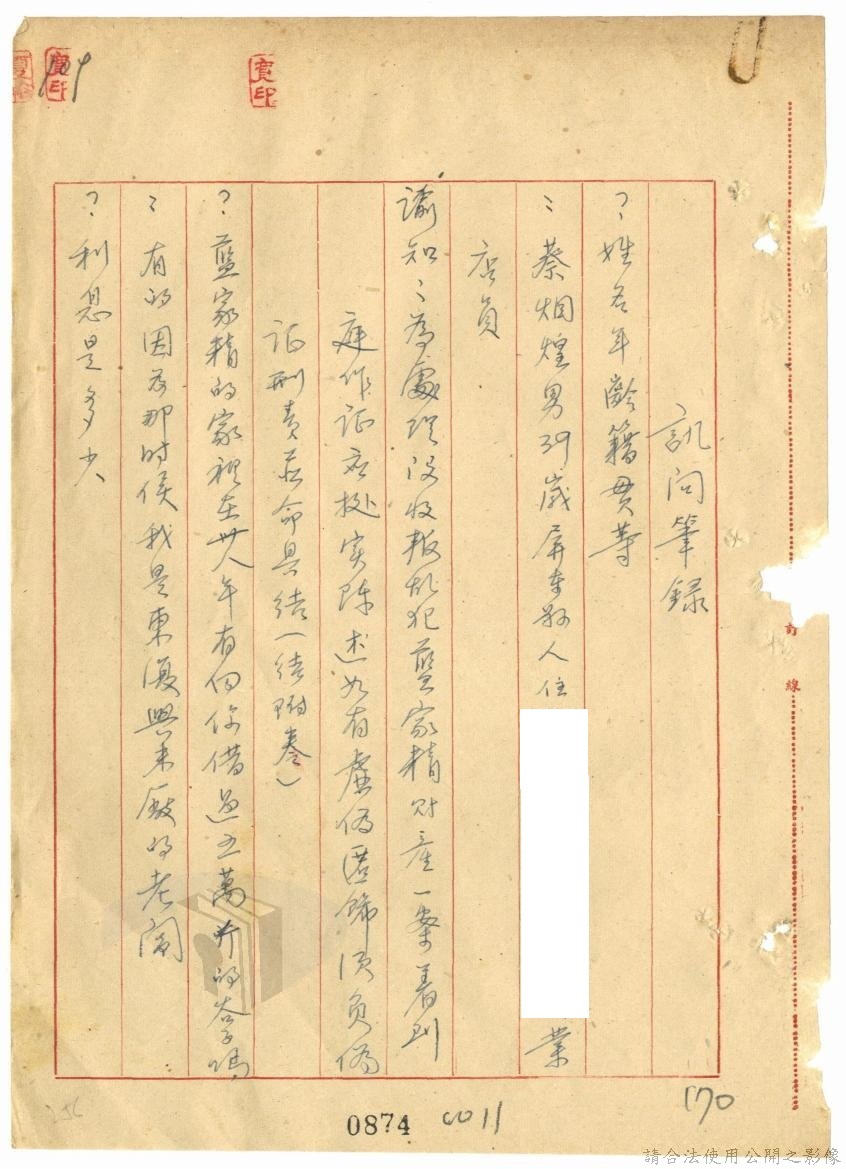 訊问筆録
？姓名年齡籍貫等
：蔡烟煌男39歲屏東縣人住 業
店員
諭知：為處理沒收叛乱犯藍家精財產一案着到
庭作证应提实陈述如有虛偽匿飾須負偽
证刑責並命具结（结附卷）
？藍家精的家裡在卅八年有向你借過五萬斤的谷子嗎
：有的因為那时候我是東復興米廠的老闆
？利息是多少
訂
線
0874
0011
170
256
請合法使用公開之影像